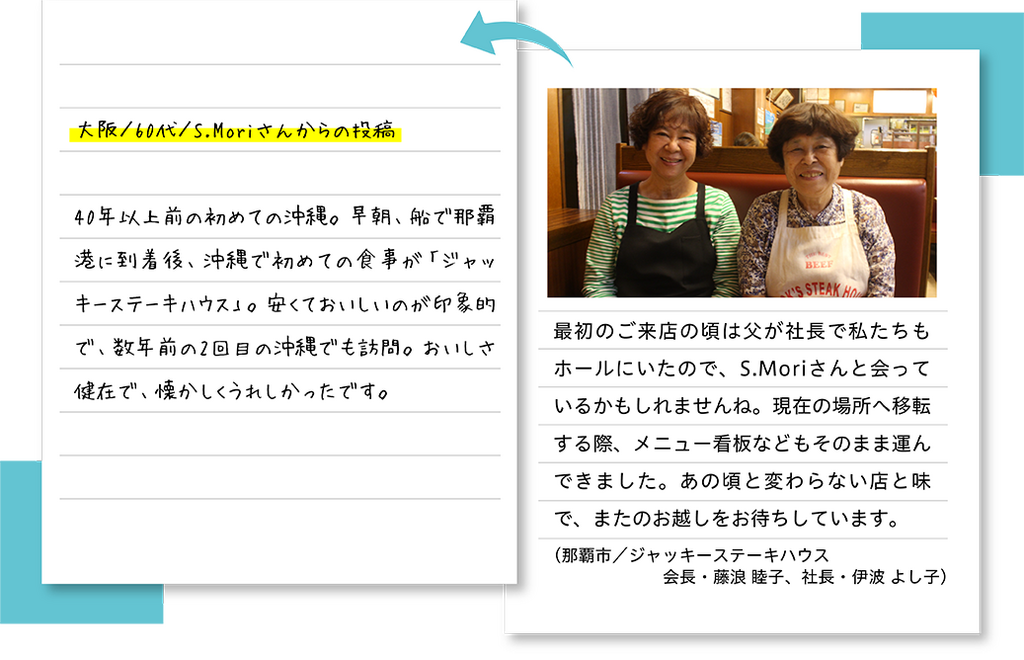 大阪/60代/S.Moriさんからの投稿
40年以上前の初めての沖縄。早朝、船で那覇
港に到着後、沖縄で初めての食事が「ジャッ
キーステーキハウス」。安くておいしいのが印象的
で、数年前の2回目の沖縄でも訪問。おいしさ
健在で、懐かしくうれしかったです。
BEEF
最初のご来店の頃は父が社長で私たちも
ホールにいたので、S.Moriさんと会って
いるかもしれませんね。現在の場所へ移転
する際、メニュー看板などもそのまま運ん
できました。あの頃と変わらない店と味
で、またのお越しをお待ちしています。
（那覇市／ジャッキーステーキハウス
会長・藤浪 睦子、社長・伊波 よし子）